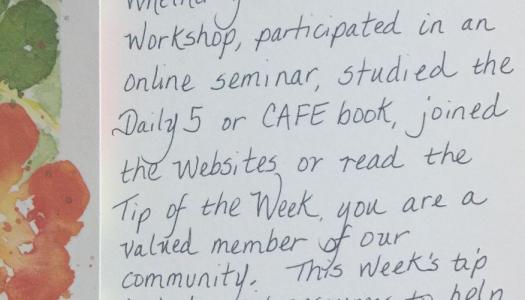 Workshop, participated in an
online seminar, studied the
Daily 5 or CAFE book, joined
the Websites or read the
Tip of the Week, you are a
valued member of our
community. This Week's tip
to help